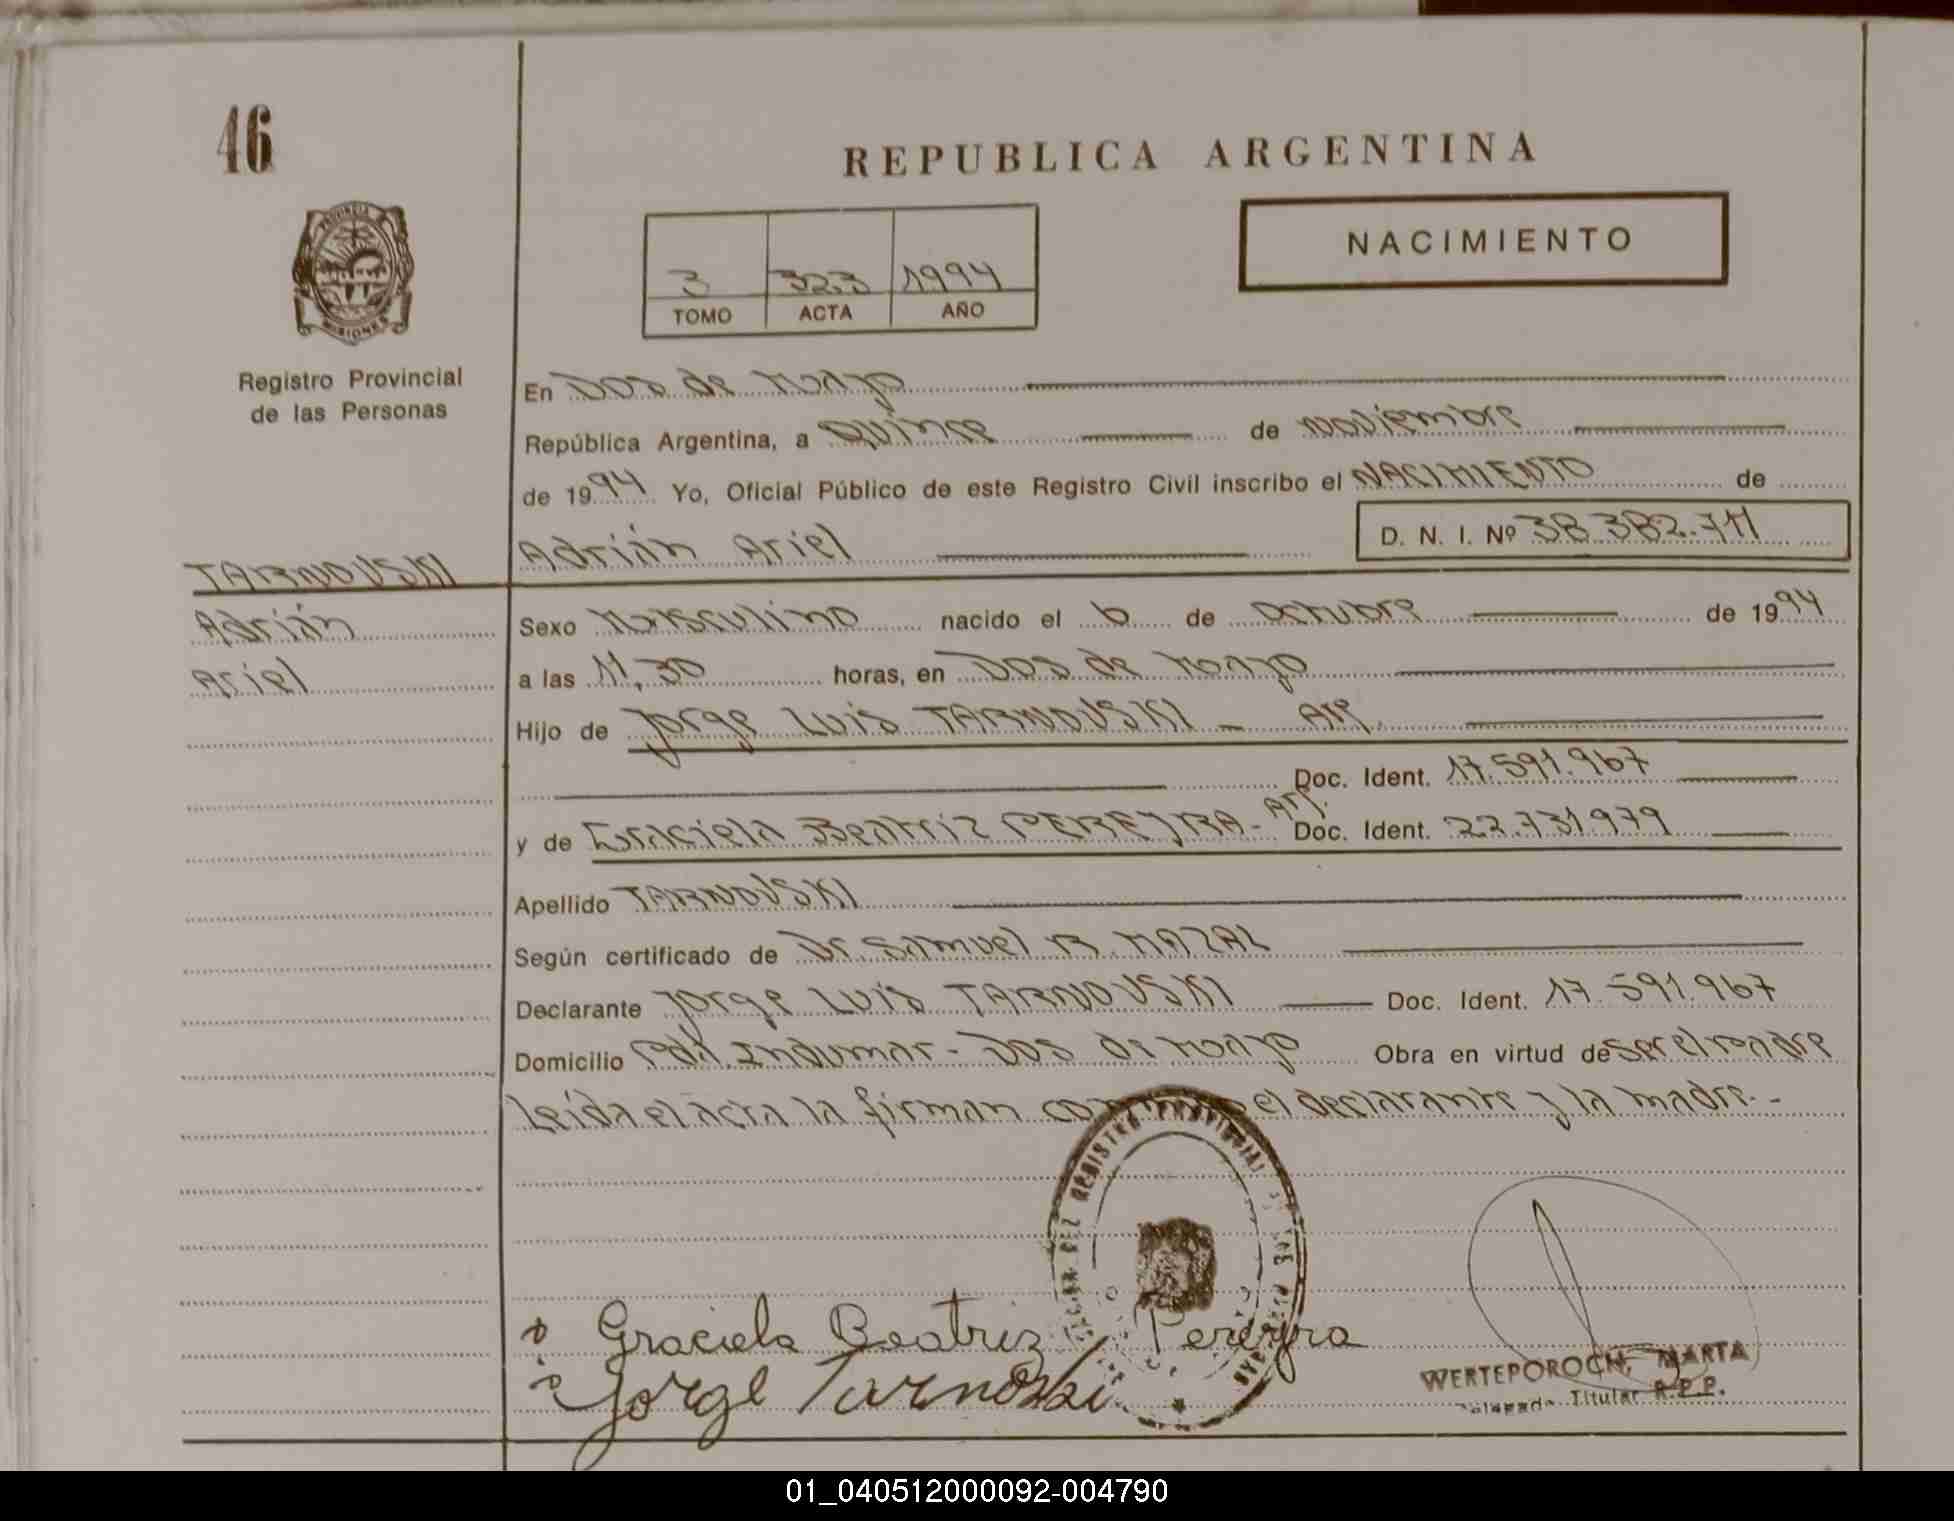 46
REPUBLICA ARGENTINA
PROVINCIA
MISIONES
Registro Provincial
de las Personas
3 323 1994
TOMO ACTA AÑO
NACIMIENTO
En Dos de Mayo
República Argentina, a quince de noviembre
de 1994 Yo, Oficial Público de este Registro Civil inscribo el NACIMIENTO de
Adrián Ariel D. N. I. Nº 38.382.711
TARNOVSKI
Adrián
Ariel
Sexo Masculino nacido el 6 de octubre de 1994
a las 11,30 horas, en Dos de Mayo
Hijo de Jorge Luis TARNOVSKI - Arg.
Doc. Ident. 17.591.967
y de Graciela Beatriz PEREYRA - Arg. Doc. Ident. 22.731.979
Apellido TARNOVSKI
Según certificado de Dr. Samuel R. MAZAL
Declarante Jorge Luis TARNOVSKI Doc. Ident. 17.591.967
Domicilio Indumar - Dos de Mayo Obra en virtud de ser el padre
Leída el acta la firman el declarante y la madre.-
REGISTRO PROVINCIAL DE LAS
Graciela Beatriz Pereyra
Jorge Tarnovski
WERTEPOROCH, MARTA
Titular R.P.P.
01_040512000092-004790